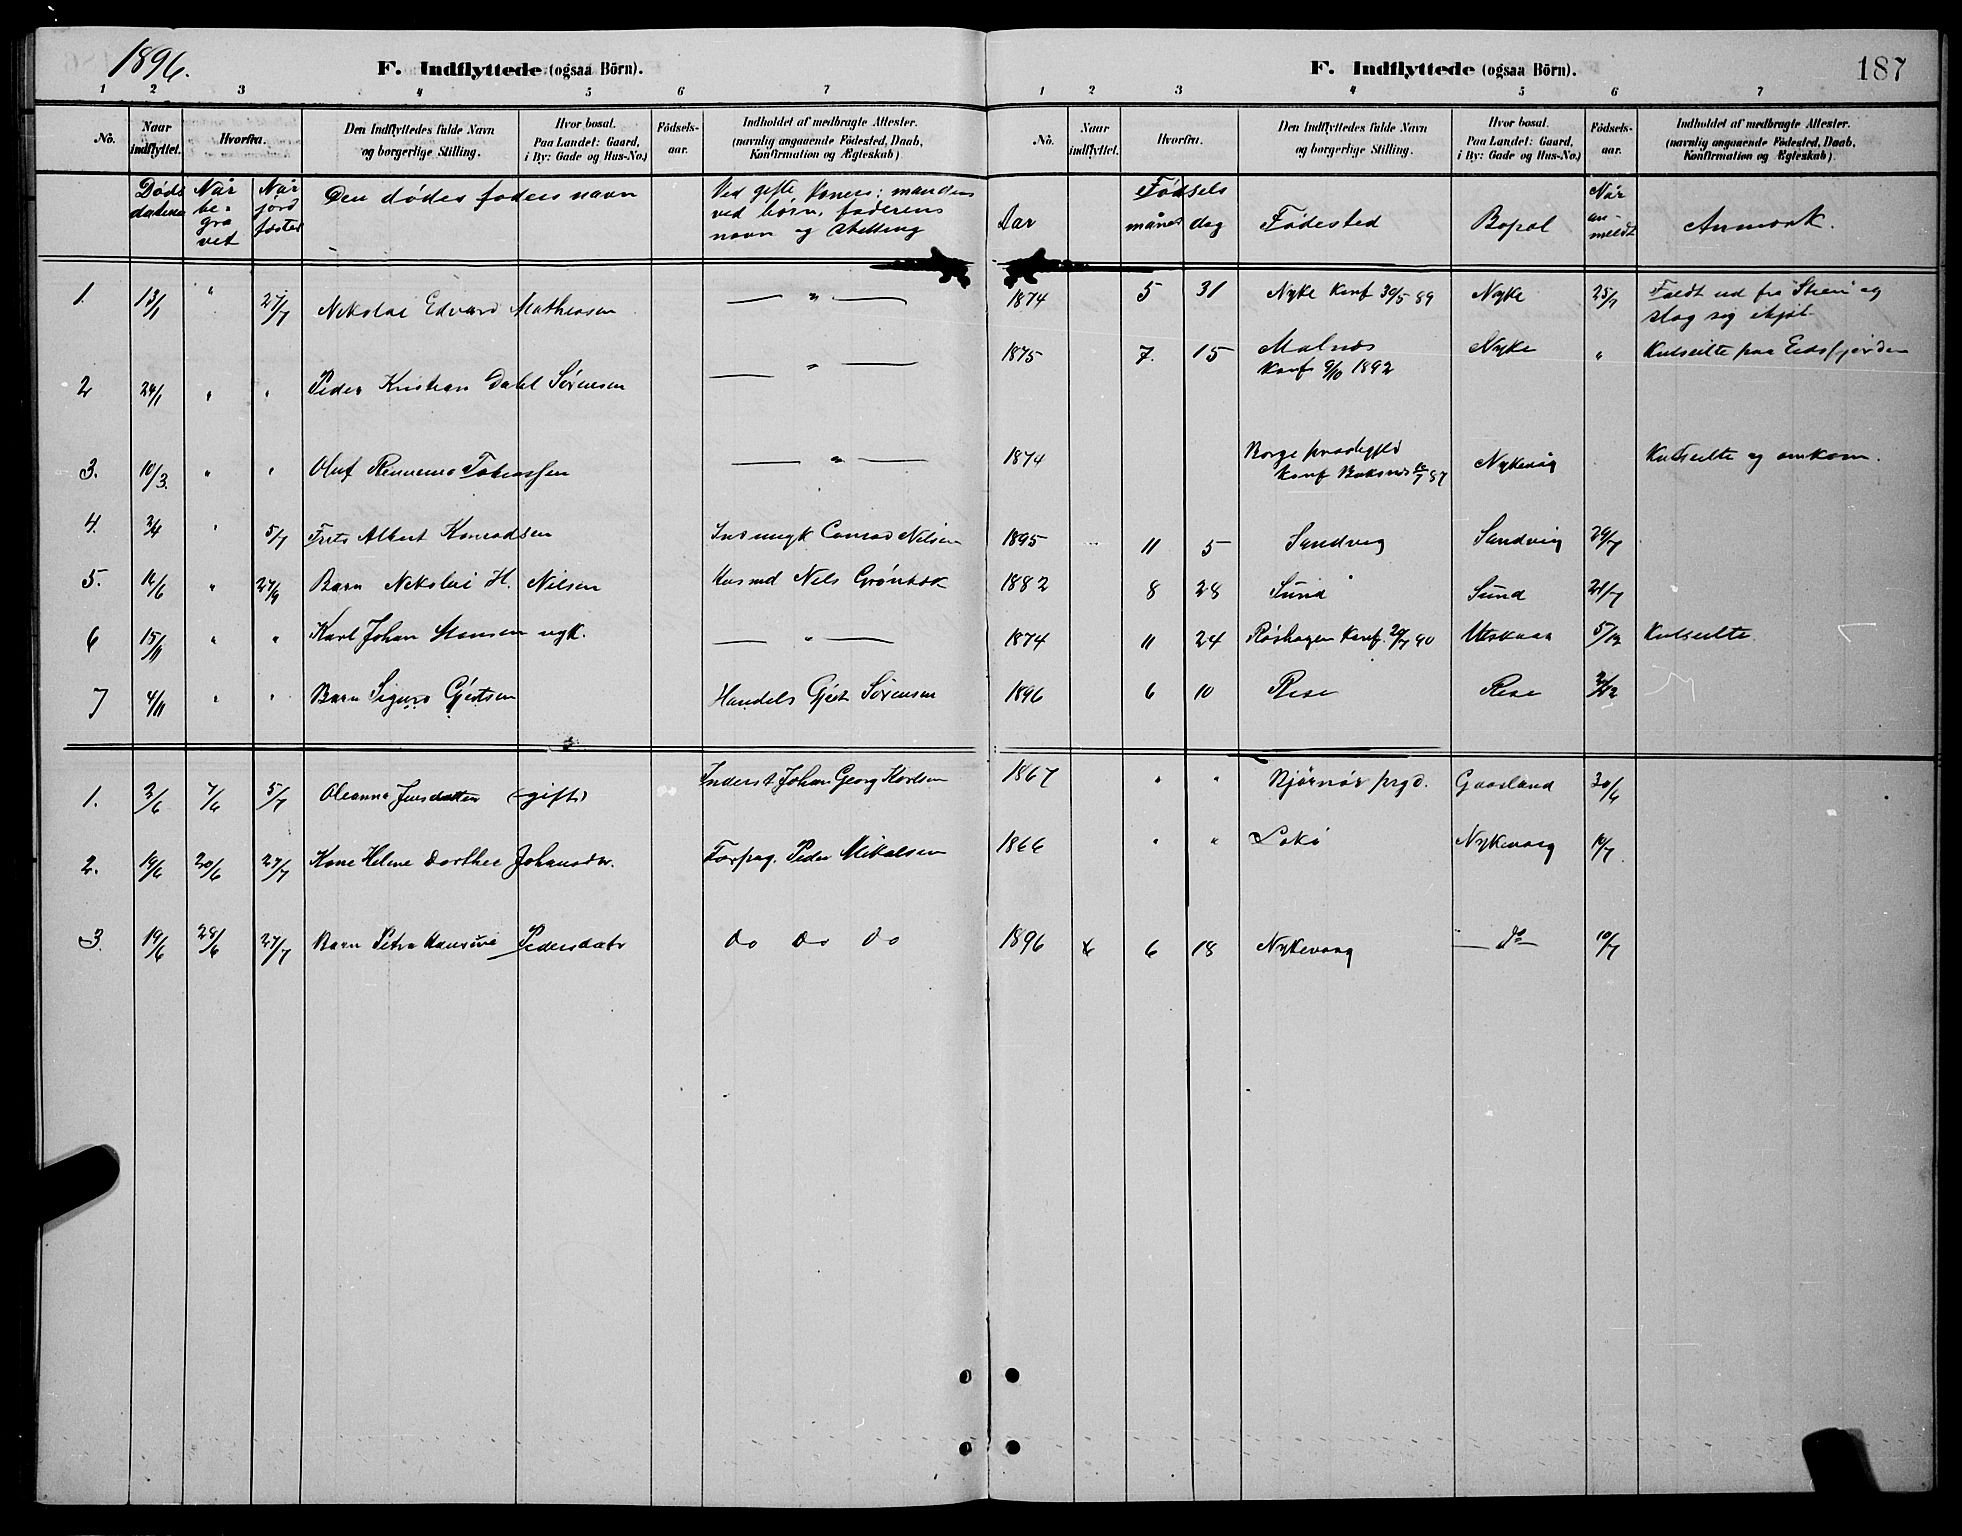 1896.
F. Indflyttede (ogsaa Börn).
1 2 3 4 5 6 7
No. Naar indflyttet. Hvorfra. Den Indflyttedes fulde Navn og borgerlige Stilling. Hvor bosat. Paa Landet: Gaard, i By: Gade og Hus-No.) Födsels-aar. Indholdet af medbragte Attester. (navnlig angaaende Födested, Daab, Konfirmation og Ægteskab)
Døds datum Når be-gra vet Når jord fæstet Den dødes foders navn Ved gifte koners: mandens ved børn, faderens navn og stilling
1. 13/1 " 27/7 Nikolai Edvard Mathiasen — " —
2 24/1 " " Peder Kristian Dahl Sørensen — " —
3. 10/3. " " Oluf Tobiassen — " —
4. 3/4 " 5/7 Frits Albert Konradsen Conrad Nilsen
5. 16/6 " 27/9 Barn Nikolai H. Nilsen Husmd Nils Grønbæk
6 15/11 " " Karl Johan Hansen ugk. — " —
7 4/11 " " Barn Sigurd Gjertsen Handels Gjert Sørensen
1. 3/6 7/6 5/7 Oleanna Jensdatter (gift) Inderst Johan Georg Karlsen
2. 19/6 20/6 27/7 Kone Helene Dorthea Johansdtr. Forpag. Peder Mikalsen
3. 19/6 28/6 27/7 Barn Petra Hansine Pedersdatr Do Do Do
F. Indflyttede (ogsaa Börn). 187
1 2 3 4 5 6 7
No. Naar indflyttet. Hvorfra. Den Indflyttedes fulde Navn og borgerlige Stilling. Hvor bosat. Paa Landet: Gaard, i By: Gade og Hus-No.) Födsels-aar. Indholdet af medbragte Attester. (navnlig angaaende Födested, Daab, Konfirmation og Ægteskab)
Aar Fødsels måned dag Fødested Bopæl Når an-meldt Anmærk.
1874 5 31 Nyke konf 30/5 89 Nyke 25/7 Faldt ud fra Stien og
slog sig ihjel
1875 7. 15 Malnæs Nyke " Kulseilte paa Eidsfjorden
konf 9/10 1892
1874 Borge prestegjeld Nykevåg Kulseilte og omkom.
konf Buksnes 10/7 87
1895 11 5 Sandvig Sandvig 29/7
1882 8 28 Sund Sund 21/7
1874 11 24 Røshagen konf. 20/7 90 Utskaar 5/12 Kulseilte
1896 6 10 Rise Rise
1867 " " Bjørnør prgd. Gaasland 30/6
1866 " " Lokø Nykevaag 10/7
1896 x 6 18 Nykevaag — do — 10/7